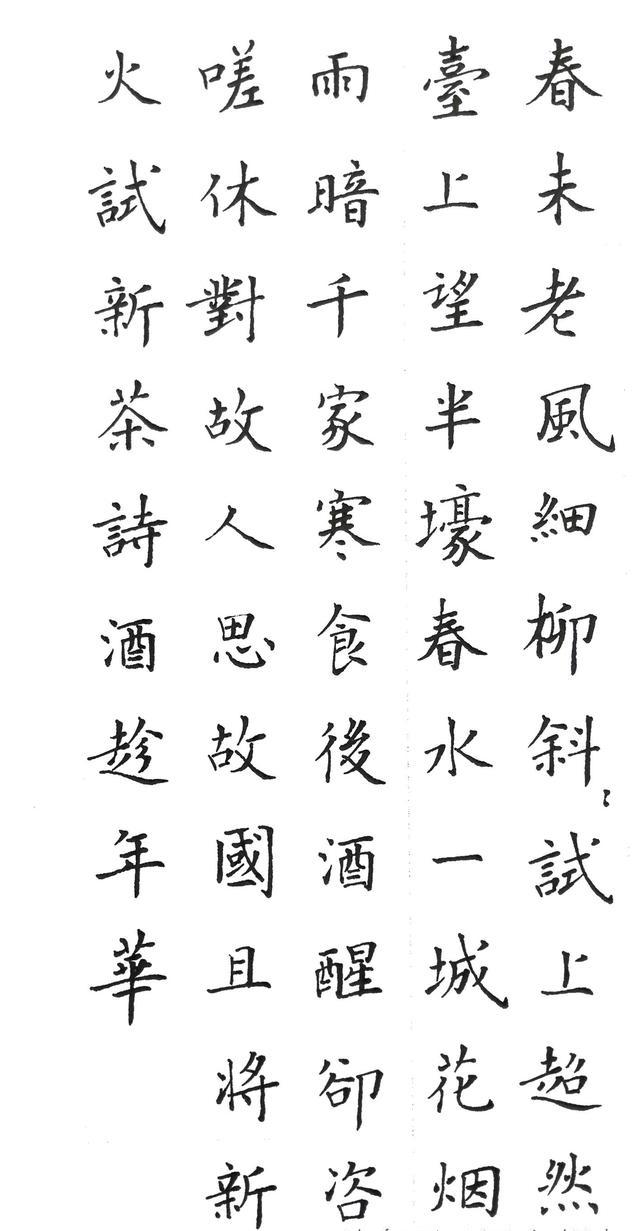 春未老風細柳斜〻試上超然
臺上望半壕春水一城花烟
雨暗千家寒食後酒醒卻咨
嗟休對故人思故國且將新
火試新茶詩酒趁年華